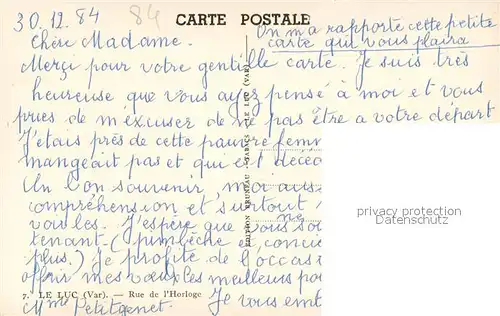 30.12.84 84 CARTE POSTALE
On m'a rapporté cette petite
carte qui vous plaira
Chère Madame.
Merçi pour votre gentille carte. Je suis très
heureuse que vous ayez pensé à moi et vous
pries de m'excuser de ne pas être a votre départ
J'étais près de cette pauvre femm
mangeait pas et qui est décéd
Un bon souvenir, moi aus
compréhension et surtout
voulles. J'espère que vous so
ne
tenant (pimbêche et concie
plus.) je profite de l'occas
offrir mes vœux les meilleurs po
7. LE LUC (Var). — Rue de l'Horloge
Je vous emb
Mme Petitgenet.
EDITION BRUNEAU - TABACS - LE LUC (VAR)
privacy protection
Datenschutz